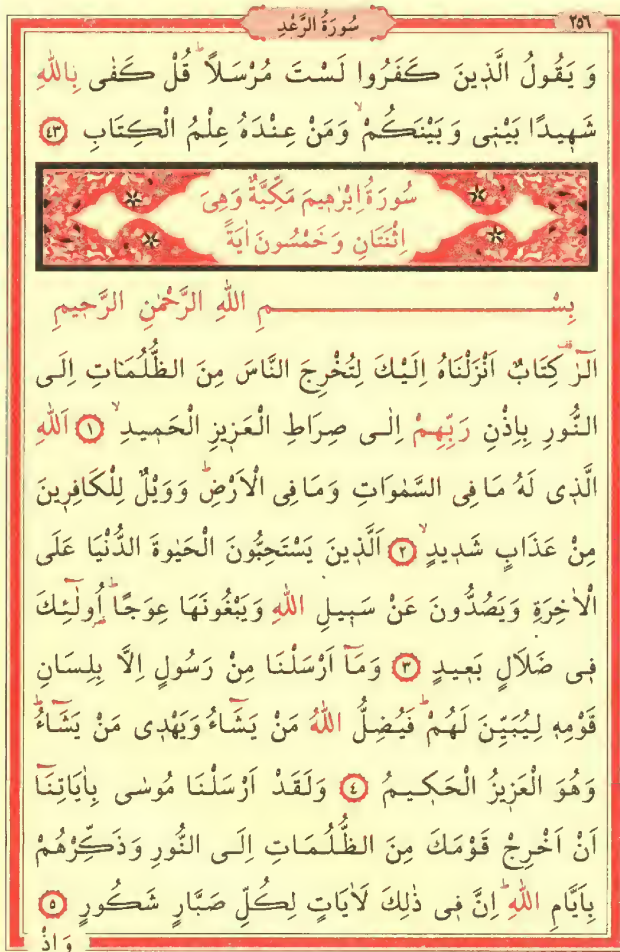 سُورَةُ الرَّعْدِ ٢٥٦
وَ يَقُولُ الَّذٖينَ كَفَرُوا لَسْتَ مُرْسَلًاؕ قُلْ كَفٰى بِاللّٰهِ
شَهٖيدًا بَيْنٖى وَ بَيْنَكُمْۙ وَمَنْ عِنْدَهُ عِلْمُ الْكِتَابِ ٤٣
سُورَةُ اِبْرٰهٖيمَ مَكِّيَّةٌ وَهِىَ
اِثْنَتَانِ وَ خَمْسُونَ اٰيَةً
بِسْمِ اللّٰهِ الرَّحْمٰنِ الرَّحٖيمِ
الٓرٰࣞ كِتَابٌ اَنْزَلْنَاهُ اِلَيْكَ لِتُخْرِجَ النَّاسَ مِنَ الظُّلُمَاتِ اِلَى
النُّورِ بِاِذْنِ رَبِّهِمْ اِلٰى صِرَاطِ الْعَزٖيزِ الْحَمٖيدِۙ ١ اَللّٰهِ
الَّذٖى لَهُ مَا فِى السَّمٰوَاتِ وَمَا فِى الْاَرْضِؕ وَوَيْلٌ لِلْكَافِرٖينَ
مِنْ عَذَابٍ شَدٖيدٍۙ ٢ اَلَّذٖينَ يَسْتَحِبُّونَ الْحَيٰوةَ الدُّنْيَا عَلَى
الْاٰخِرَةِ وَيَصُدُّونَ عَنْ سَبٖيلِ اللّٰهِ وَيَبْغُونَهَا عِوَجًاؕ اُولٰٓئِكَ
فٖى ضَلَالٍ بَعٖيدٍ ٣ وَمَٓا اَرْسَلْنَا مِنْ رَسُولٍ اِلَّا بِلِسَانِ
قَوْمِهٖ لِيُبَيِّنَ لَهُمْؕ فَيُضِلُّ اللّٰهُ مَنْ يَشَٓاءُ وَيَهْدٖى مَنْ يَشَٓاءُؕ
وَهُوَ الْعَزٖيزُ الْحَكٖيمُ ٤ وَلَقَدْ اَرْسَلْنَا مُوسٰى بِاٰيَاتِنَٓا
اَنْ اَخْرِجْ قَوْمَكَ مِنَ الظُّلُمَاتِ اِلَى النُّورِ وَذَكِّرْهُمْ
بِاَيَّامِ اللّٰهِؕ اِنَّ فٖى ذٰلِكَ لَاٰيَاتٍ لِكُلِّ صَبَّارٍ شَكُورٍ ٥
وَاِذْ